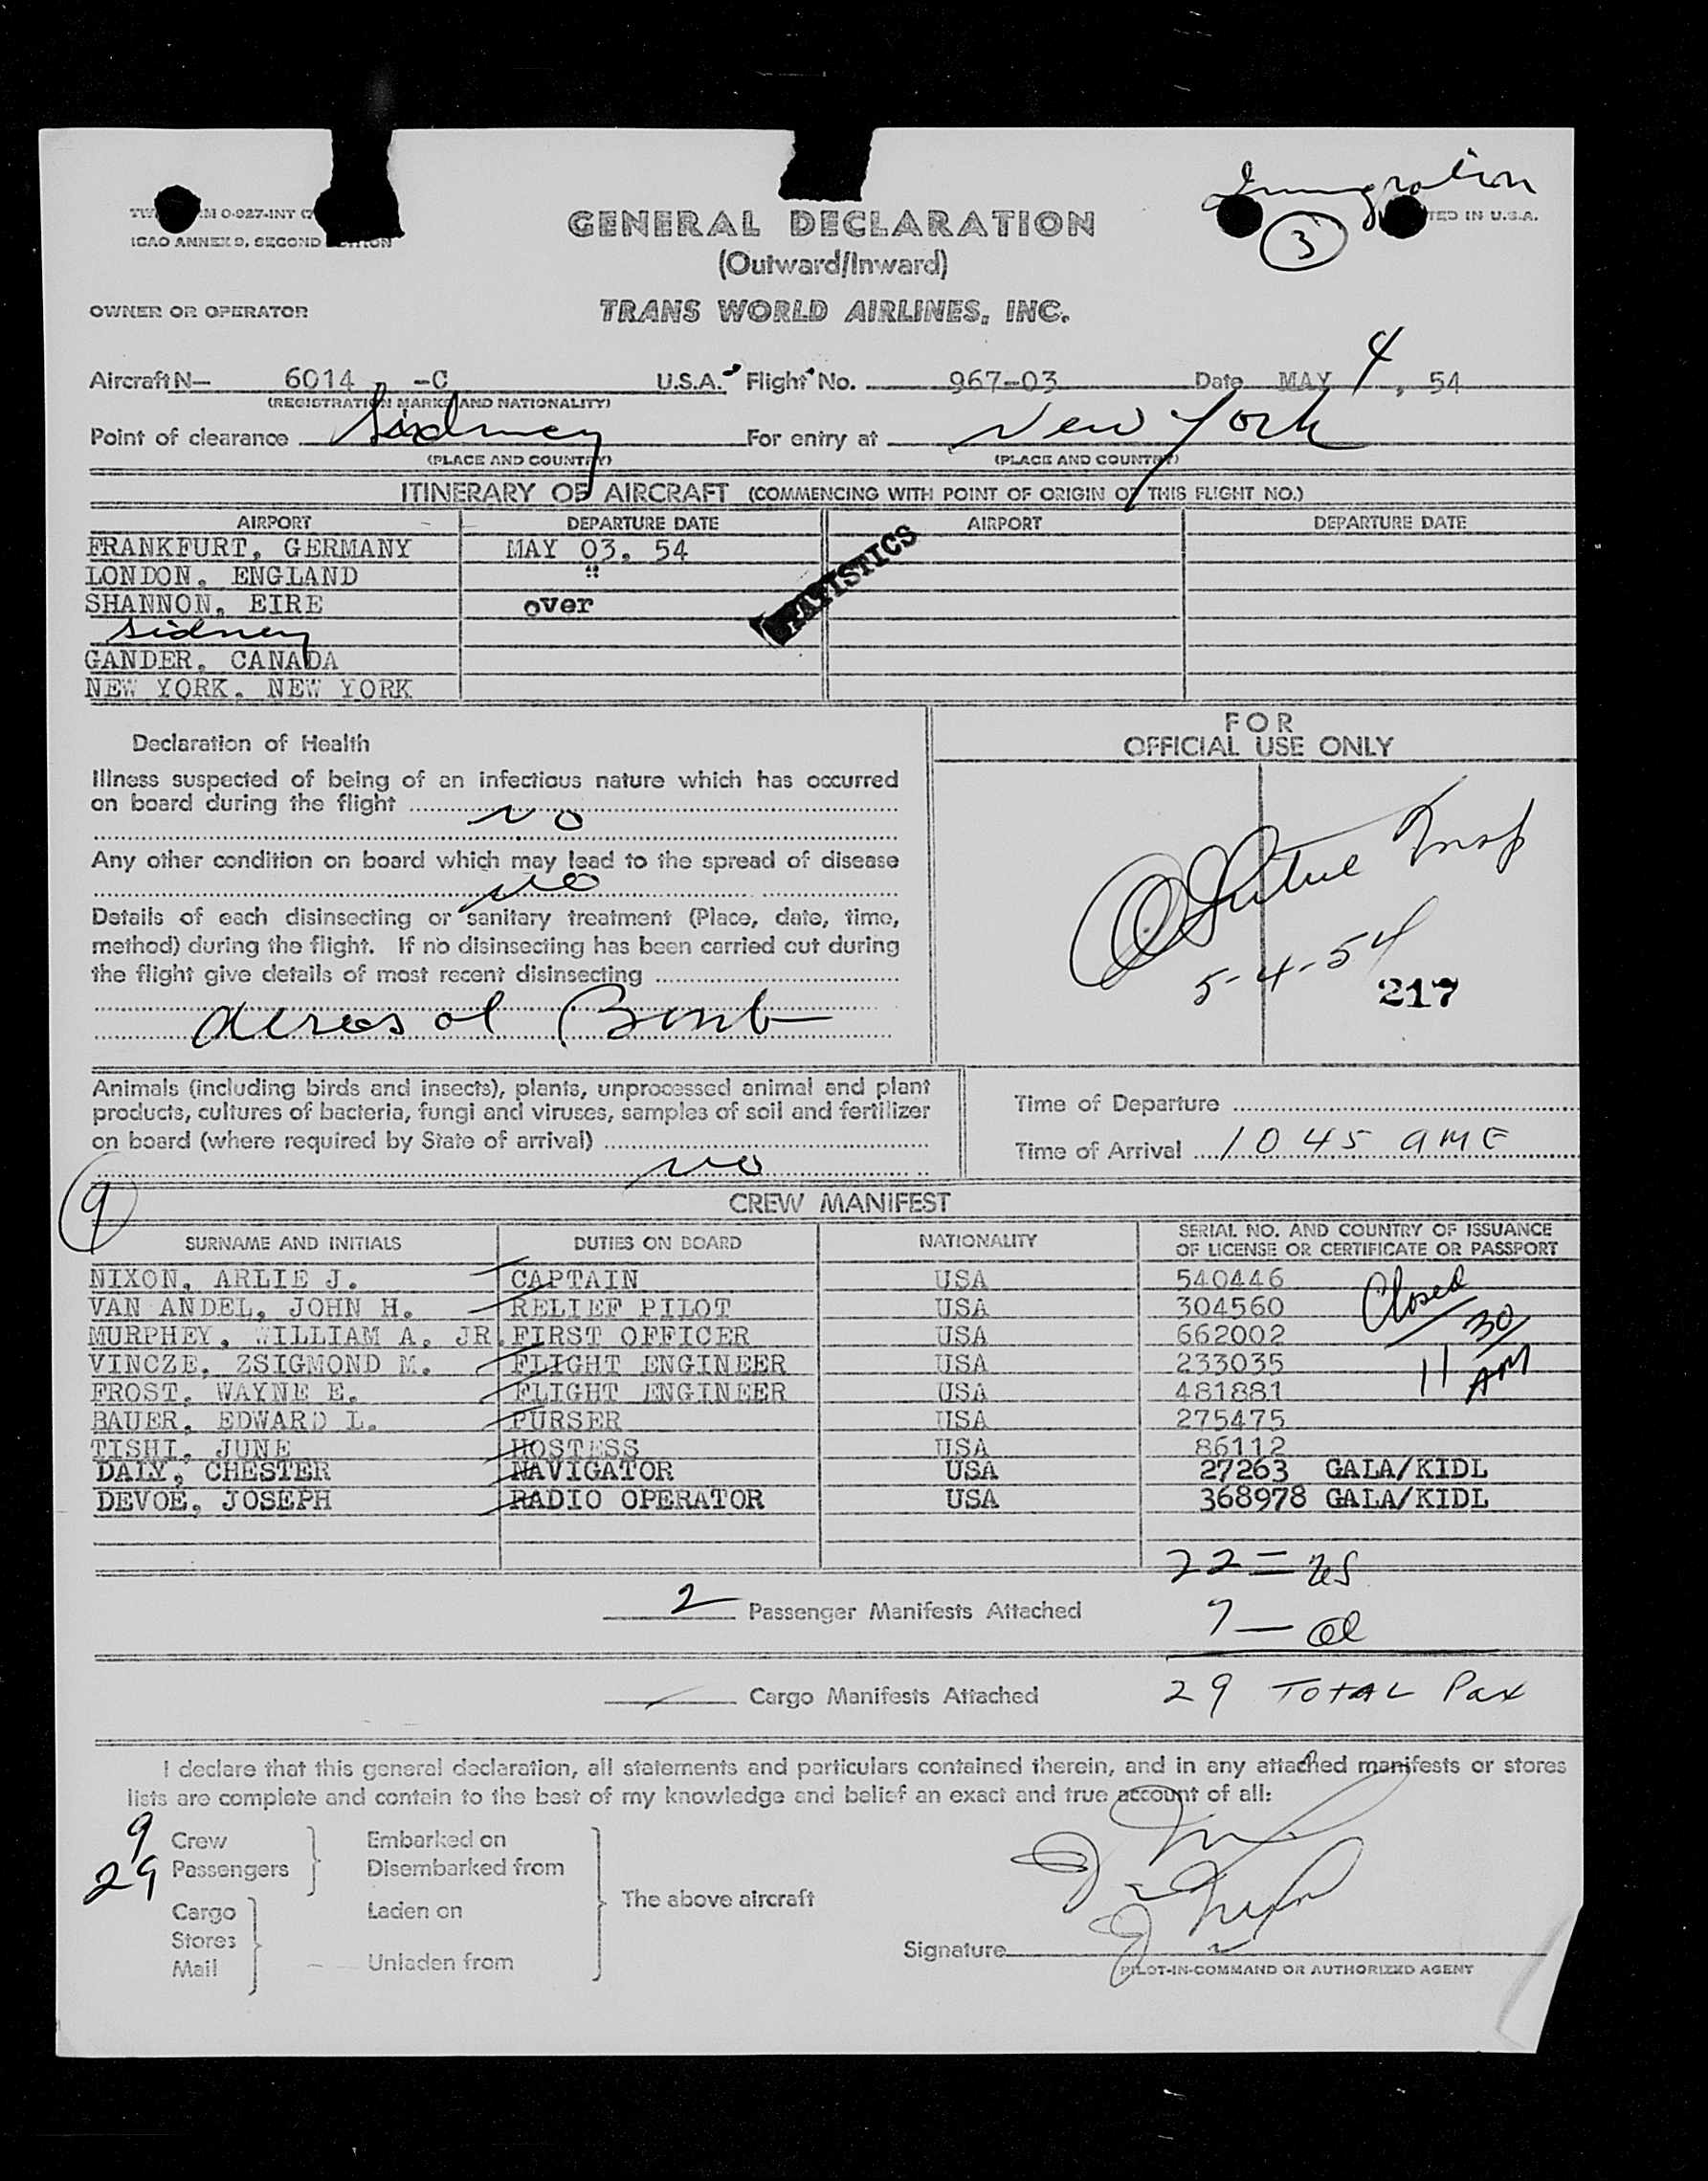 Immigration
TED IN U.S.A.
ICAO ANNEX 9, SECOND
GENERAL DECLARATION
3
(Outward/Inward)
OWNER OR OPERATOR
TRANS WORLD AIRLINES, INC.
Aircraft N— 6014 -C U.S.A. Flight No. 967-03 Date MAY 4, 54
(REGISTRATION MARKS AND NATIONALITY)
Point of clearance Sidney For entry at New York
(PLACE AND COUNTRY) (PLACE AND COUNTRY)
ITINERARY OF AIRCRAFT (COMMENCING WITH POINT OF ORIGIN OF THIS FLIGHT NO.)
AIRPORT DEPARTURE DATE AIRPORT DEPARTURE DATE
FRANKFURT, GERMANY MAY 03, 54
LONDON, ENGLAND "
SHANNON, EIRE over
Sidney
GANDER, CANADA
NEW YORK, NEW YORK
Declaration of Health
Illness suspected of being of an infectious nature which has occurred
on board during the flight
no
Any other condition on board which may lead to the spread of disease
no
Details of each disinsecting or sanitary treatment (Place, date, time,
method) during the flight. If no disinsecting has been carried out during
the flight give details of most recent disinsecting
Aerosol Bomb
FOR
OFFICIAL USE ONLY
Insp
5-4-54
217
Animals (including birds and insects), plants, unprocessed animal and plant
products, cultures of bacteria, fungi and viruses, samples of soil and fertilizer
on board (where required by State of arrival)
no
Time of Departure
Time of Arrival 1045 AME
9
CREW MANIFEST
SURNAME AND INITIALS DUTIES ON BOARD NATIONALITY SERIAL NO. AND COUNTRY OF ISSUANCE
OF LICENSE OR CERTIFICATE OR PASSPORT
NIXON, ARLIE J. CAPTAIN USA 540446
VAN ANDEL, JOHN H. RELIEF PILOT USA 304560
MURPHEY, WILLIAM A. JR. FIRST OFFICER USA 662002
VINCZE, ZSIGMOND M. FLIGHT ENGINEER USA 233035
FROST, WAYNE E. FLIGHT ENGINEER USA 481881
BAUER, EDWARD L. PURSER USA 275475
TISHI, JUNE HOSTESS USA 86112
DALY, CHESTER NAVIGATOR USA 27263 GALA/KIDL
DEVOE, JOSEPH RADIO OPERATOR USA 368978 GALA/KIDL
Closed
11 30 AM
22 — US
2 Passenger Manifests Attached
7 — al
Cargo Manifests Attached
29 TOTAL Pax
I declare that this general declaration, all statements and particulars contained therein, and in any attached manifests or stores
lists are complete and contain to the best of my knowledge and belief an exact and true account of all:
9 Crew Embarked on
29 Passengers Disembarked from
The above aircraft
Cargo Laden on
Stores
Mail Unladen from
Signature
PILOT-IN-COMMAND OR AUTHORIZED AGENT